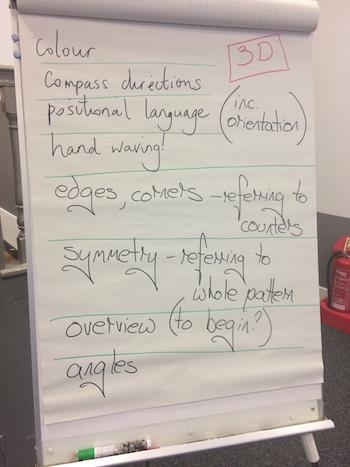 Colour
3D
Compass directions
positional language (inc. orientation)
hand waving!
edges, corners - referring to
counters
symmetry - referring to
whole pattern
overview (to begin?)
angles